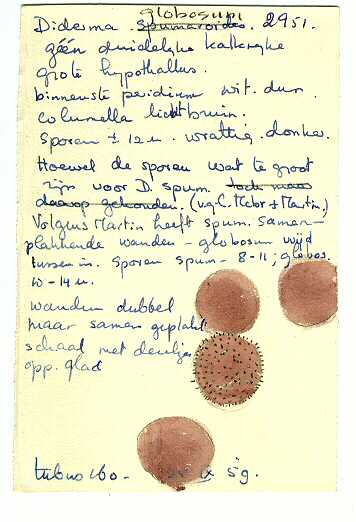 globosum
Diderma spumarioides. 2951.
géén duidelijke kalkrijke
grote hypothallus.
binnenste peridium wit. dun.
columella lichtbruin.
sporen ± 12 u. wrattig. donker.
Hoewel de sporen wat te groot
zijn voor D. spum. toch maar
daarop gehouden. (vg. C. Mebr + Martin)
Volgens Martin heeft spum. samen-
plakkende wanden - globosum wijd
tussen in. Sporen spum - 8-11; globos.
10-14 u.
wanden dubbel
maar samen geplakt
schaal met deukjes
opp. glad
IX 59.